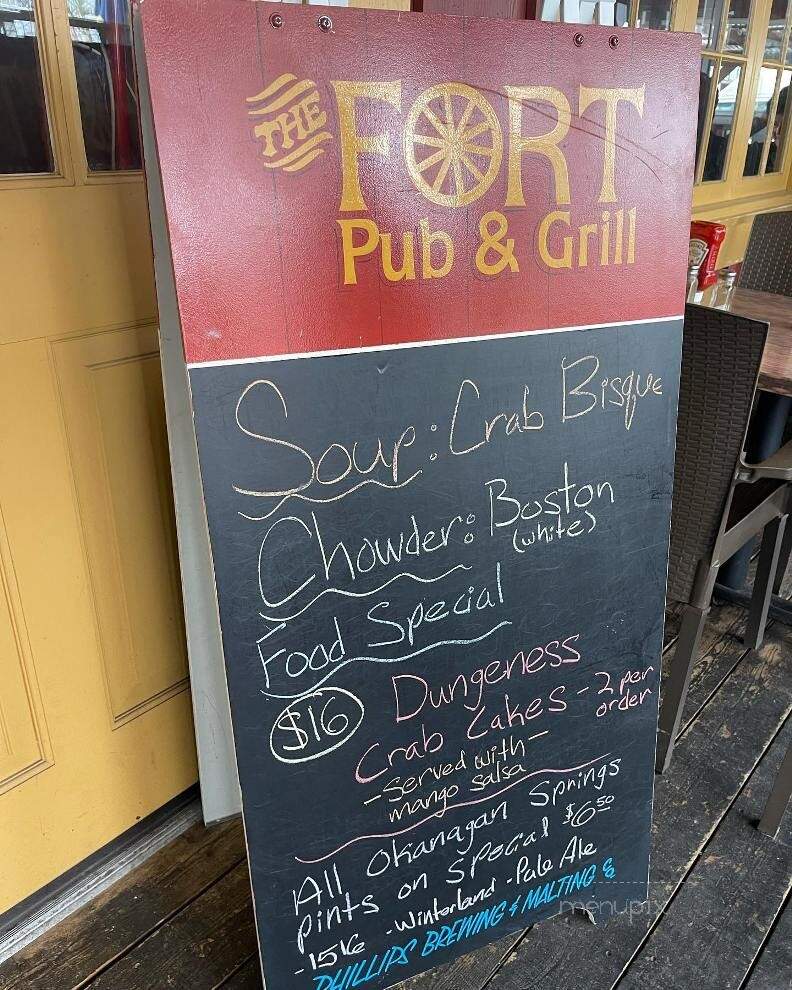 THE FORT
Pub & Grill
Soup: Crab Bisque
Chowder: Boston
(white)
Food Special
$16 Dungeness
Crab Cakes - 2 per
order
- Served with -
mango salsa
All Okanagan Springs
pints on special $6.50
- 1516 - Winterland - Pale Ale
PHILLIPS BREWING & MALTING Co
menupix